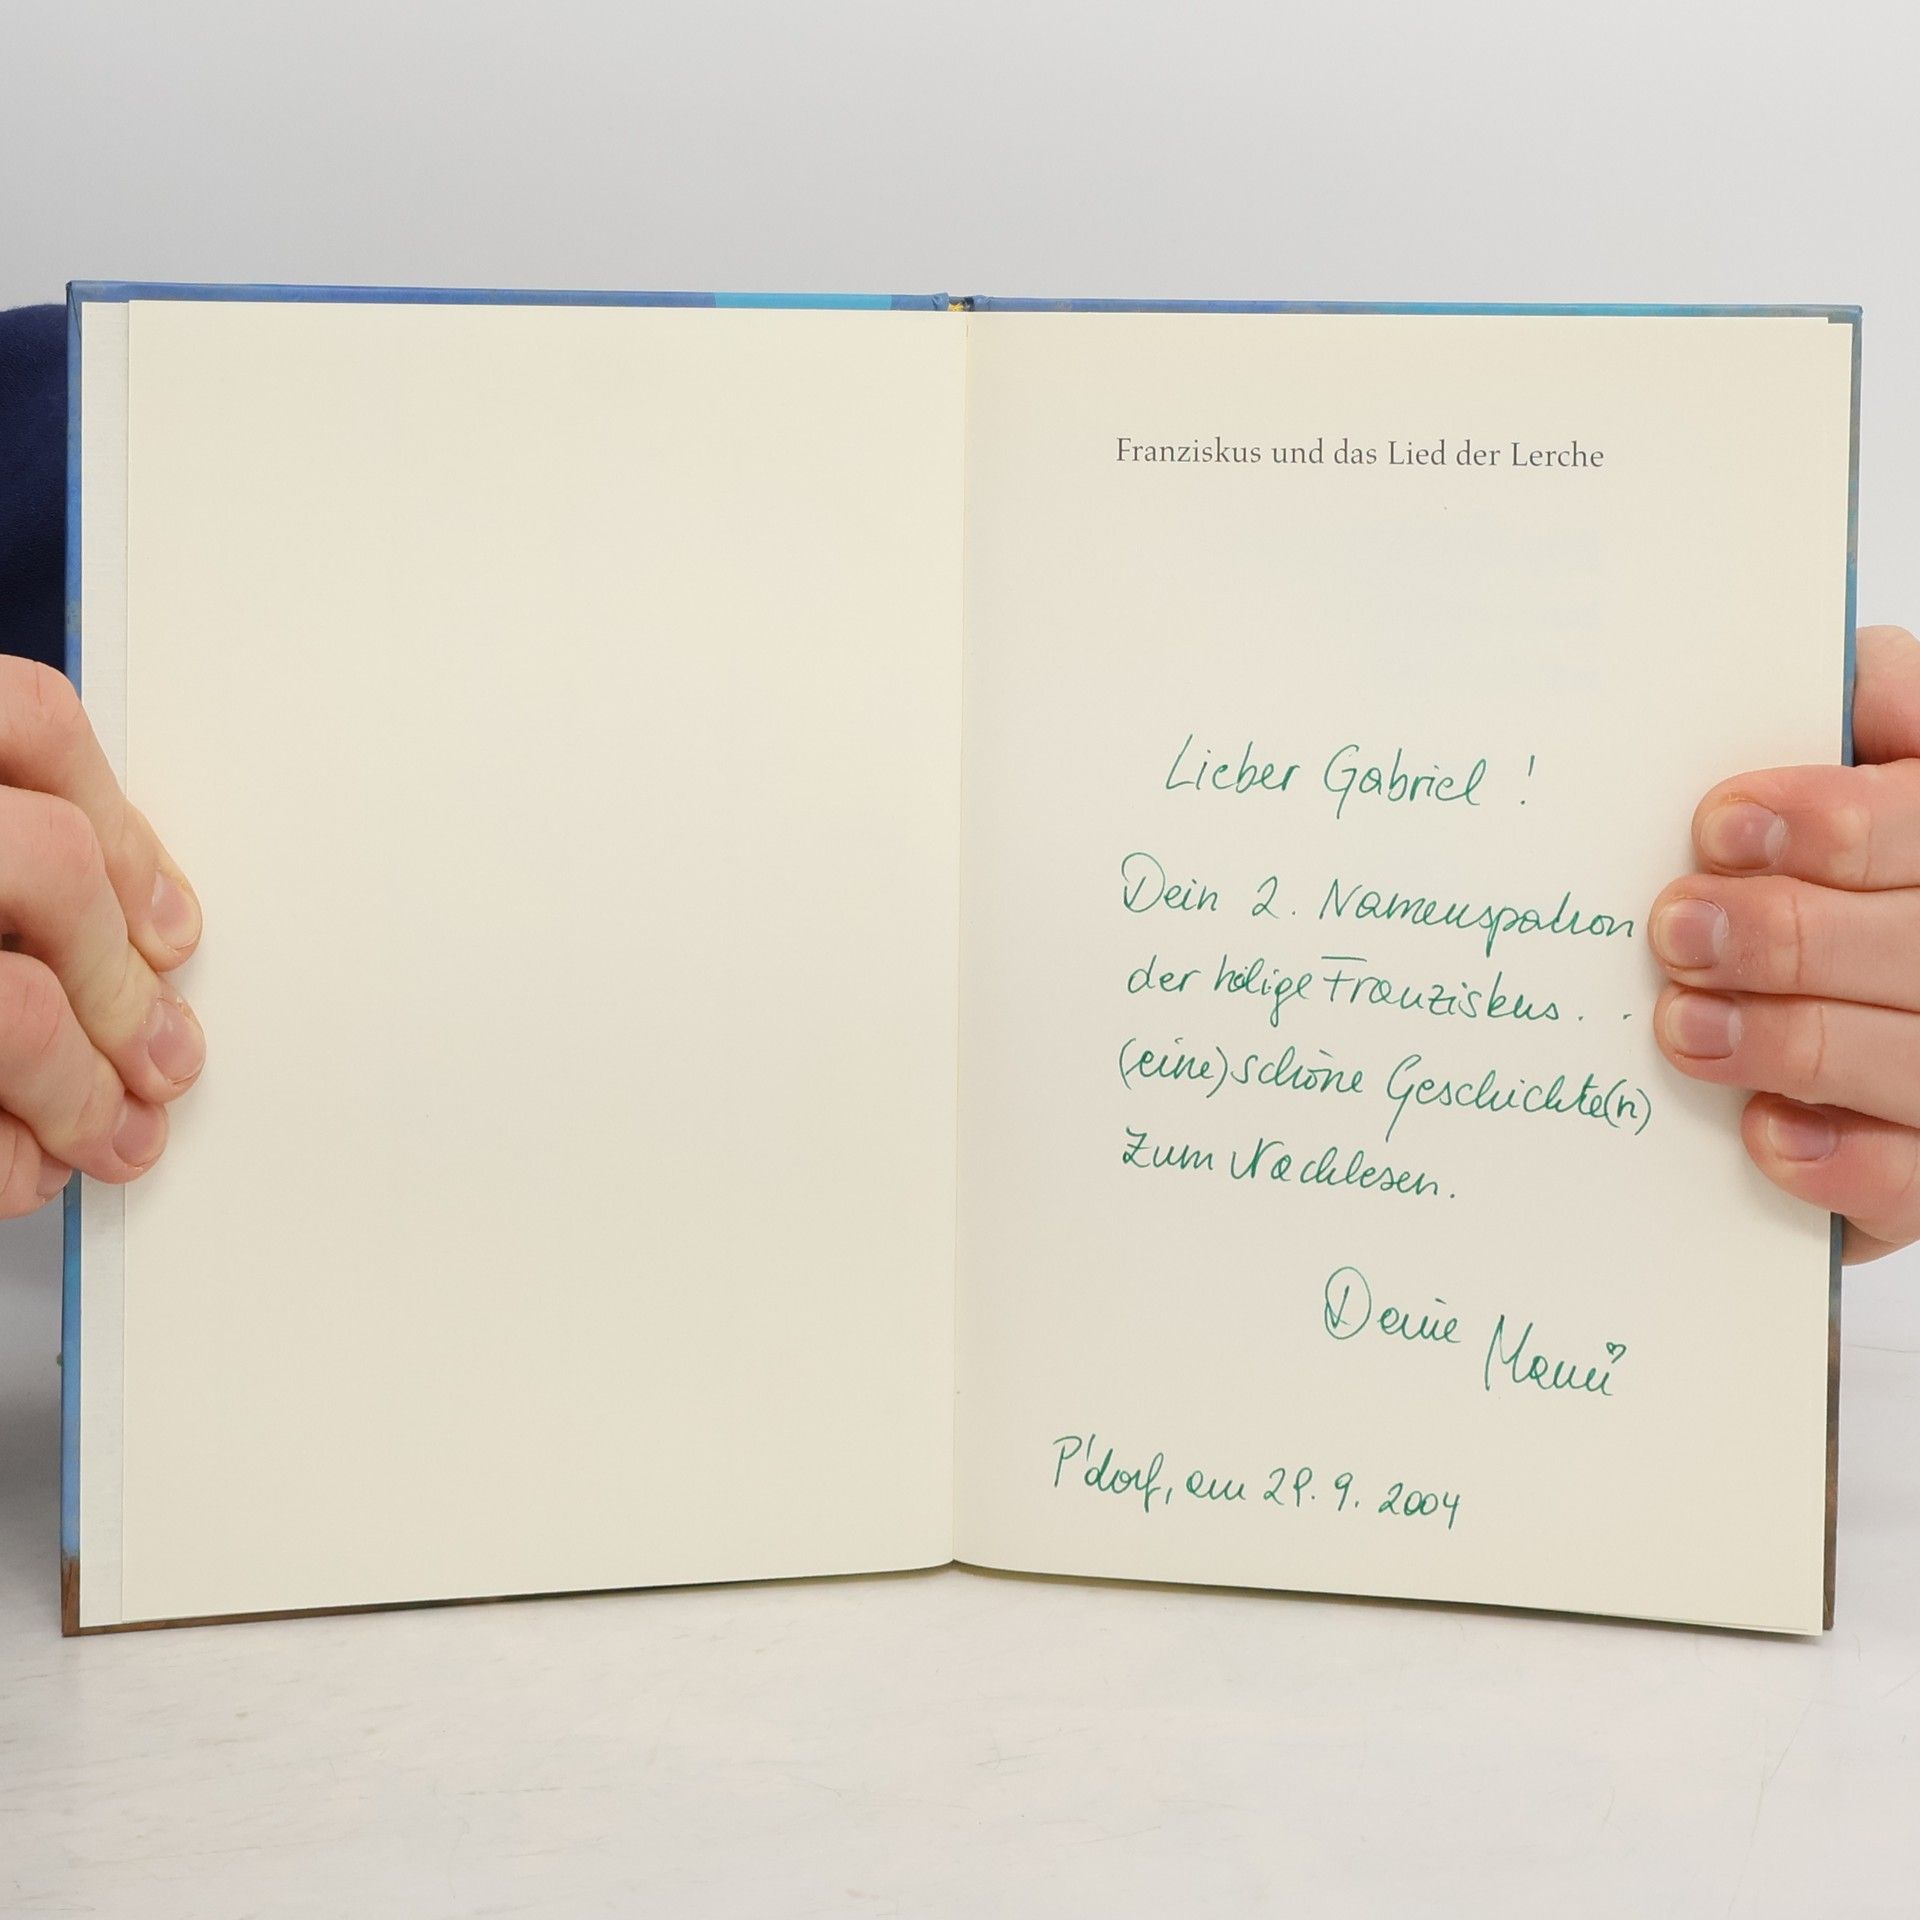 Franziskus und das Lied der Lerche
Lieber Gabriel !
Dein 2. Namenspatron
der heilige Franziskus . .
(eine) schöne Geschichte(n)
zum Nachlesen.
Deine
P'dorf, am 29. 9. 2004